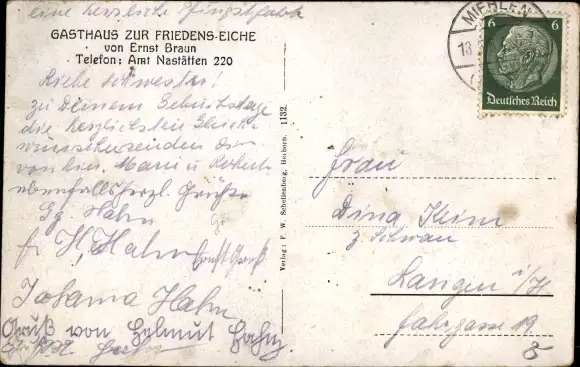 eine herzliche Pfingst
GASTHAUS ZUR FRIEDENS-EICHE
von Ernst Braun
Telefon: Amt Nastätten 220
Liebe Schwester!
zu Deinem Geburtstage
die herzlichsten Glück-
von hier. Marie u Robert
ebenfalls herzl. Grüße
Gg. Hahn
H. Hahn
Johanna Hahn
Gruß von Helmut Hahn
Verlag: F. W. Schellenberg, Herborn. 1132.
MIEHLEN
18
6 6
Deutsches Reich
Frau
Dina Keim
z. Schwan
Langen i/H
Fahrgasse 19